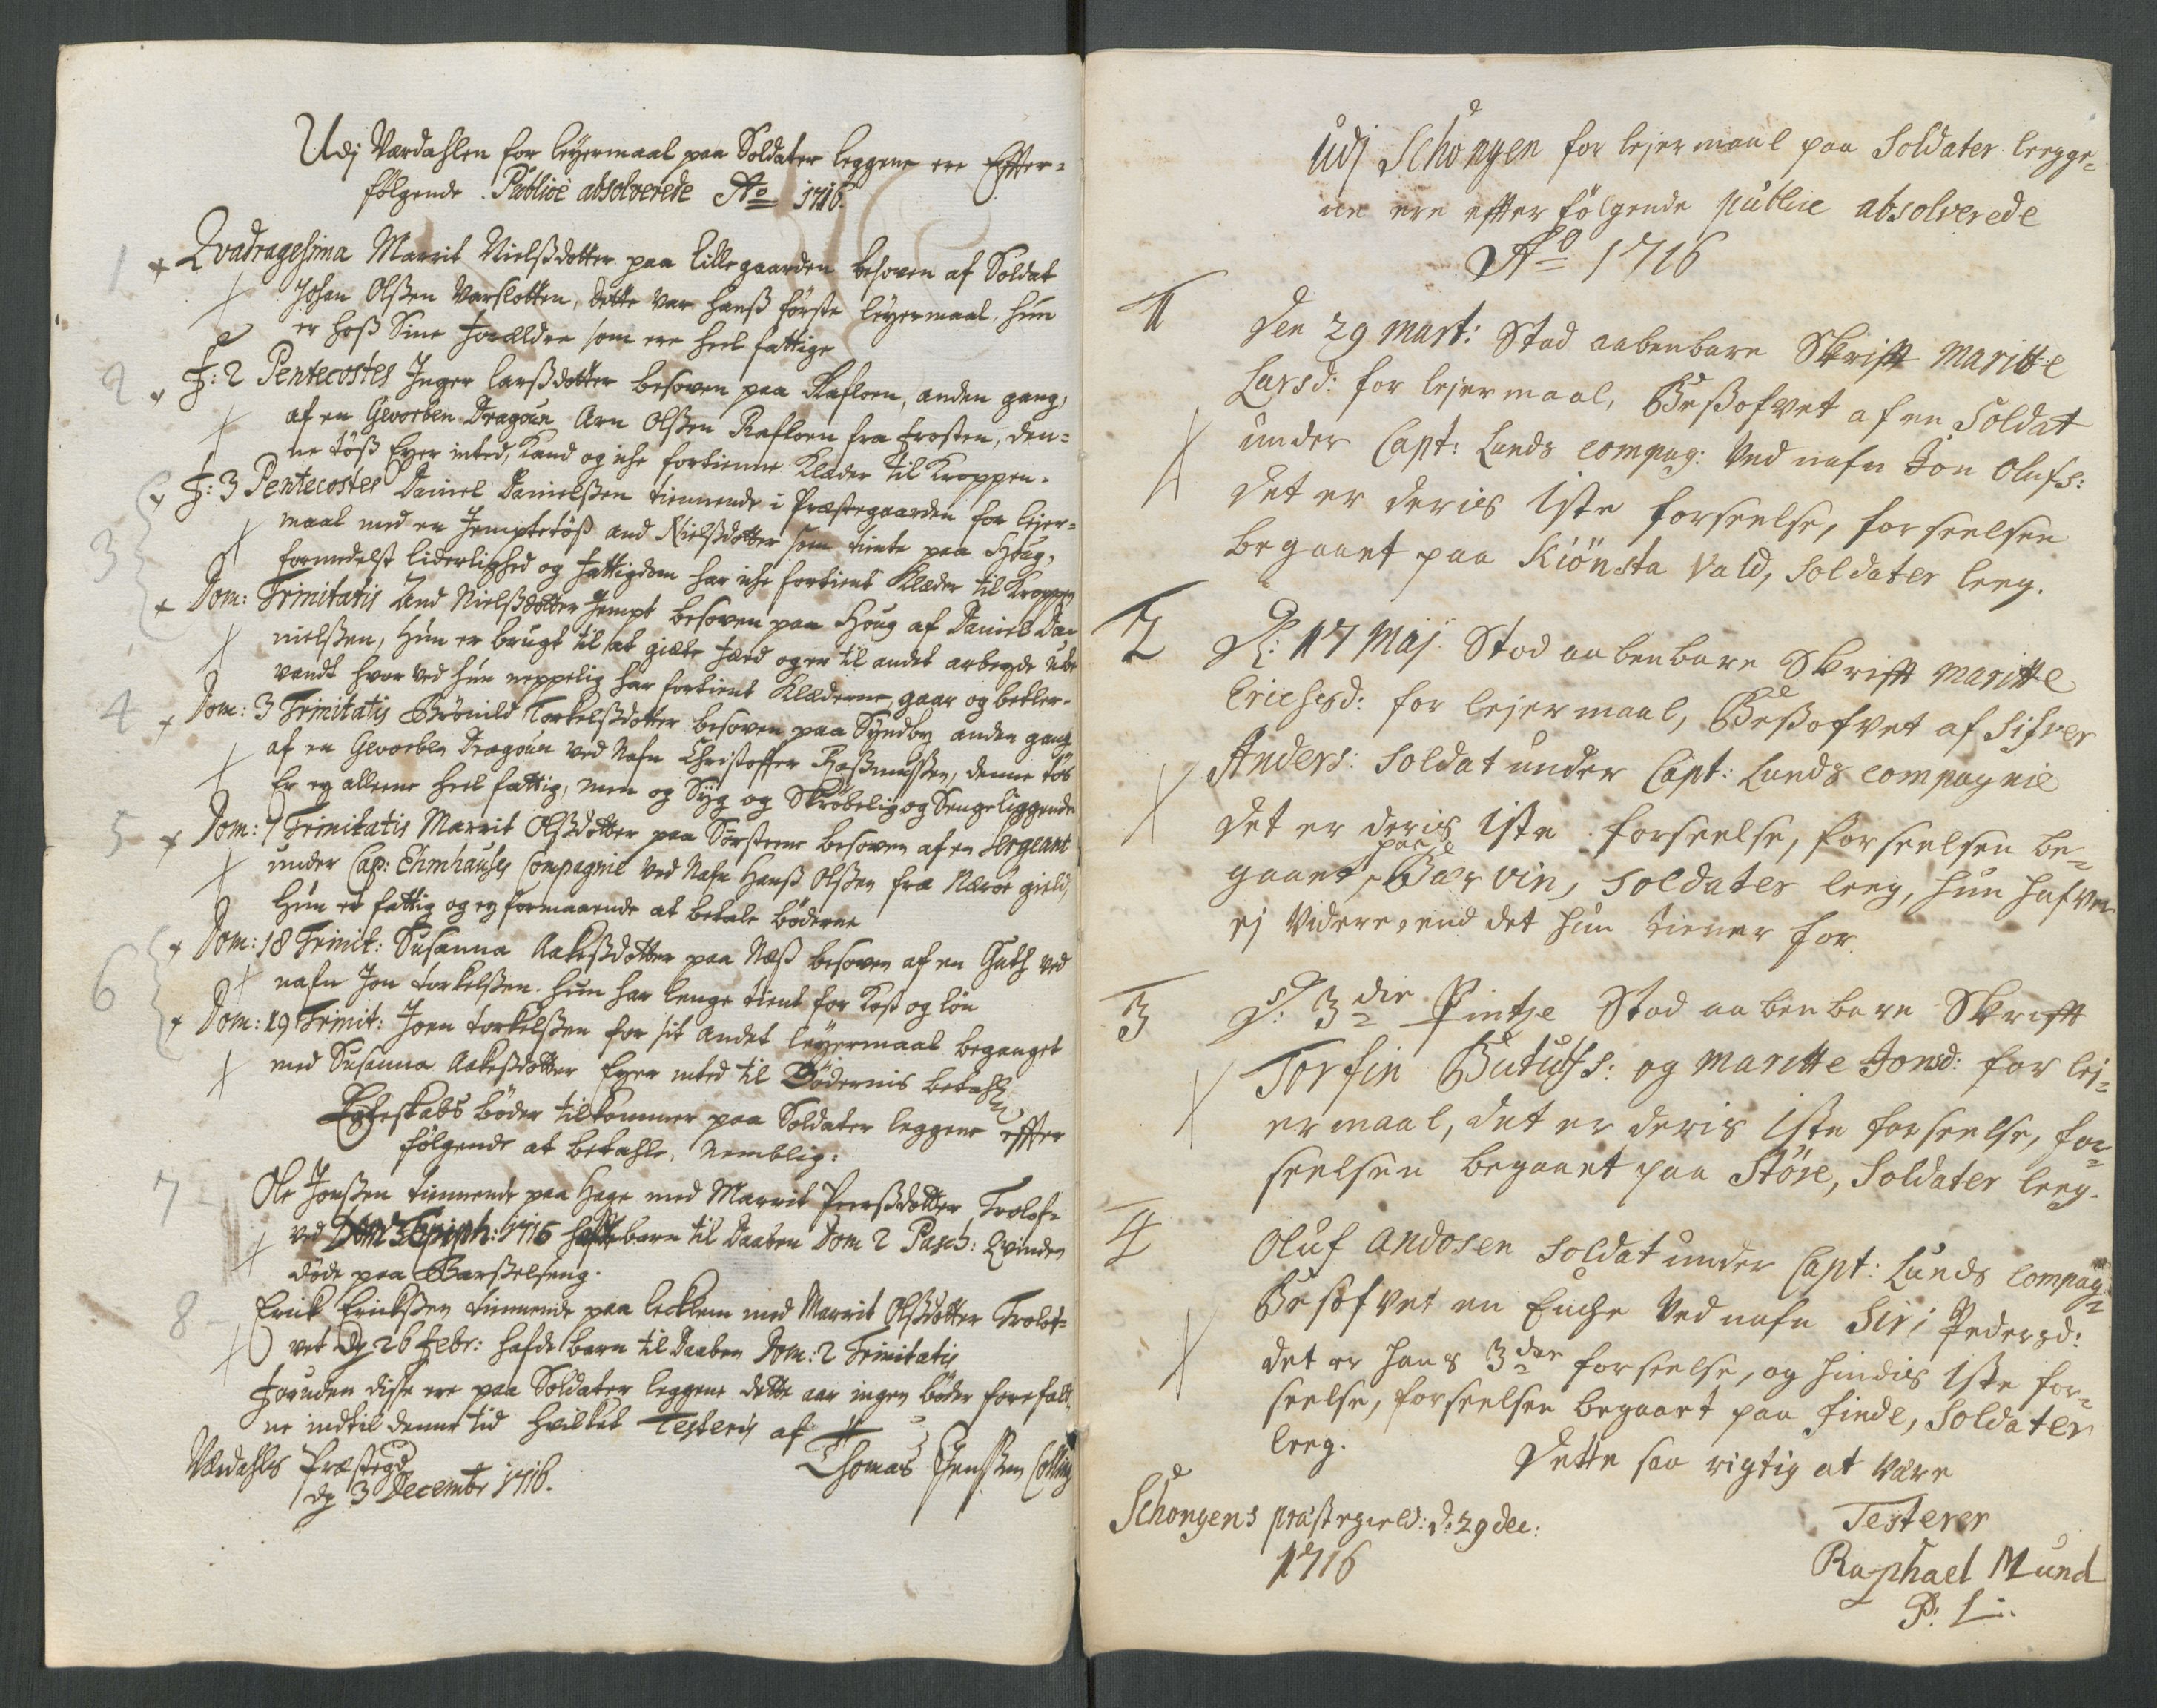 Udj Værdahlen for leyermaal paa Soldater leggene ere Efter-
følgende Publicè absolverede Ao 1716.
1 Qvadragesima Marrit Nielssdotter paa Lillegaarden besoven af Soldat
Johan Olssen Varslotten, dette var hanss første leyermaal, hun
er hoss Sine Forældre som ere heel fattige
2 F: 2 Pentecostes Inger Larssdotter besoven paa Rafloen, anden gang,
af en Gevorben Dragoun Arn Olssen Rafloen fra Frosten, den-
ne töss Eyer inted, Kand og iche fortienne Klæder til Kroppen.
3 F: 3 Pentecostes Daniel Danielssen tiennende i Præstegaarden for leyer-
maal med en Jemptetöss And Nielssdotter som tiente paa Houg,
formedelst liderlighed og fattigdom har iche fortient Klæder til Kroppen
Dom: Trinitatis And Nielssdotter Jempt besoven paa Houg af Daniel Da-
nielssen, Hun er brugt til at giæte Fæ og er til andet arbeyde ube
vandt hvor ved hun neppelig har fortient Klæderne, gaar og betler.
4 Dom: 3 Trinitatis Brönild Torkelssdotter besoven paa Syndby anden gang
af en Gevorben Dragoun ved Nafn Christoffer Rassmussen, denne tös
Er ey alleene heel fattig, men og Syg og Skröbelig og Sengeliggende
5 Dom: 7 Trinitatis Marrit Olssdotter paa Sörsteene besoven af en Sergeant
under Cap: Ehmhauses Compagnie ved Nafn Hanss Olssen fra Næröe gield,
Hun er fattig og ey formaaende at betale böderne
6 Dom: 18 Trinit: Susanna Aakessdotter paa Næss besoven af en Gutt ved
nafn Jon Torkelssen. hun har lenge tient for Kost og lön
Dom: 19 Trinit: Joen Torkelssen for sit andet leyermaal beganget
med Susanna Aakessdotter Eyer inted til Bödernis betahling
Egteskabs böder tilkommer paa Soldater leggene effter
følgende at betahle, Nemblig:
7 Ole Jonssen tiennende paa Hage med Marrit Peerssdotter Trolof-
ved Dom 3 Epiph: 1716 hafde barn til Daaben Dom 2 Pasch: Qvinden
döde paa Barsselseng.
8 Erick Erickssen tiennende paa Lecklem med Marrit Olssdotter Trolof-
vet Dj 26 Febr: hafde barn til Daaben Dom: 2 Trinitatis
Foruden disse ere paa Soldater leggene dette aar ingen böder forefald
ne indtil denne tid hvilket Testeris af
Værdahls Præstegd Thomas Jenssen Colling
dj 3 Decembr 1716.
Udj Schongen for lejermaal paa Soldater leegge-
ne ere effter fölgende publice absolverede
Ao 1716
1 Den 29 Mart: Stod aabenbare Skrifft Maritte
Larsd: for lejermaal, Bessofvet af en Soldat
under Capt: Lunds compag: Ved nafn Jon Olufs:
det er deris 1ste forseelse, forseelsen
begaaet paa Kiönsta Vald, Soldater leeg.
2 D: 17 Maj Stod aabenbare Skrifft Maritte
Erichsd: for lejermaal, Bessofvet af Sifver
Anders: Soldat under Capt: Lunds compagnie
det er deris 1ste forseelse, forseelsen be-
gaaet paa Bærvin, Soldater leeg, hun hafver
ej videre, end det hun tiener for.
3 D: 3die Pintze Stod aabenbare Skrifft
Torfin Butulfs: og Maritte Jonsd: for lej-
ermaal, det er deris 1ste forseelse, for-
seelsen begaaet paa Störe, Soldater leeg.
4 Oluf Andosen Soldat under Capt: Lunds compag-
Besofvet en Enche ved nafn Siri Pedersd:
det er hans 3die forseelse, og hindis 1ste for-
seelse, forseelsen begaaet paa Finde, Soldater
leeg. Dette saa rigtig at være
Schongens præstegield: d: 29 dec: Testerer
1716 Raphael Mund